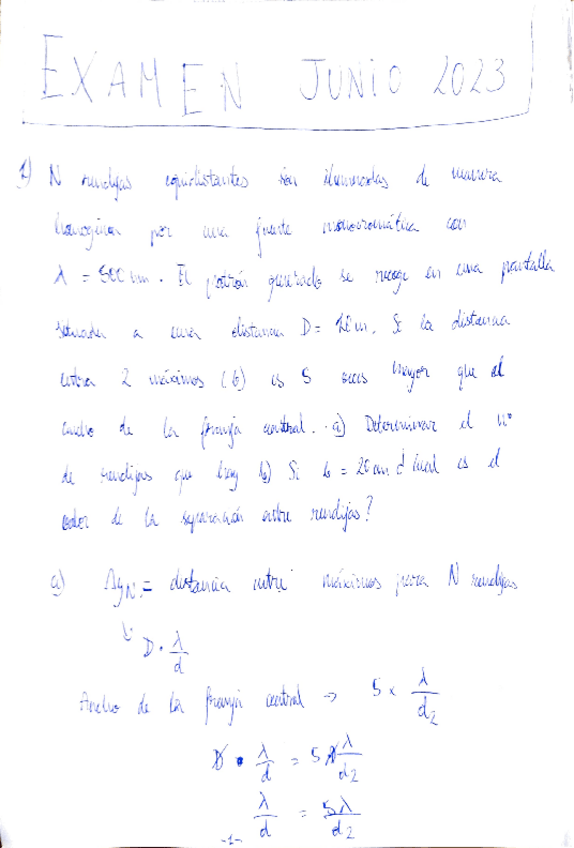 EXAMEN JUNIO 2023
1) N rendijas equidistantes son iluminadas de manera
homogénea por una fuente monocromática con
λ = 500 nm. El patrón generado se recoge en una pantalla
situada a una distancia D = m. Si la distancia
entre 2 máximos (b) es 5 veces mayor que el
ancho de la franja central. a) Determinar el nº
de rendijas que hay b) Si b = 20 cm ¿cual es el
valor de la separación entre rendijas?
a) Δy_N = distancia entre máximos para N rendijas
D · λ/d
Ancho de la franja central → 5 × λ/d₂
D · λ/d = 5 λ/d₂
λ/d = 5λ/d₂
-1-